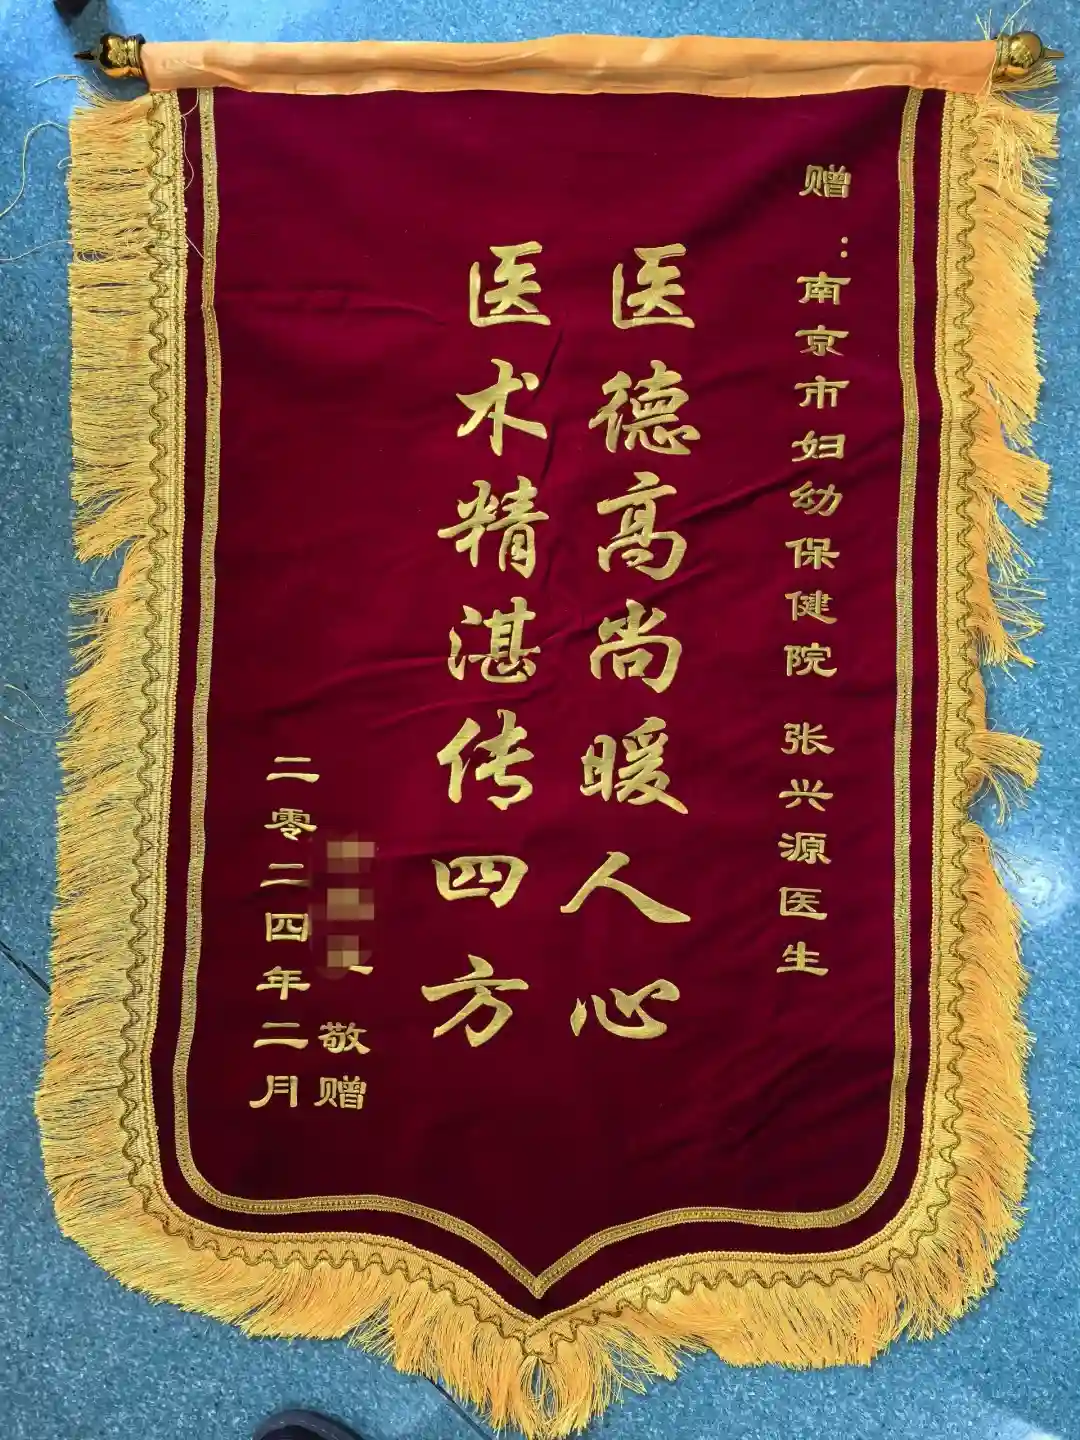 赠：南京市妇幼保健院 张兴源医生
医德高尚暖人心
医术精湛传四方
敬赠
二零二四年二月